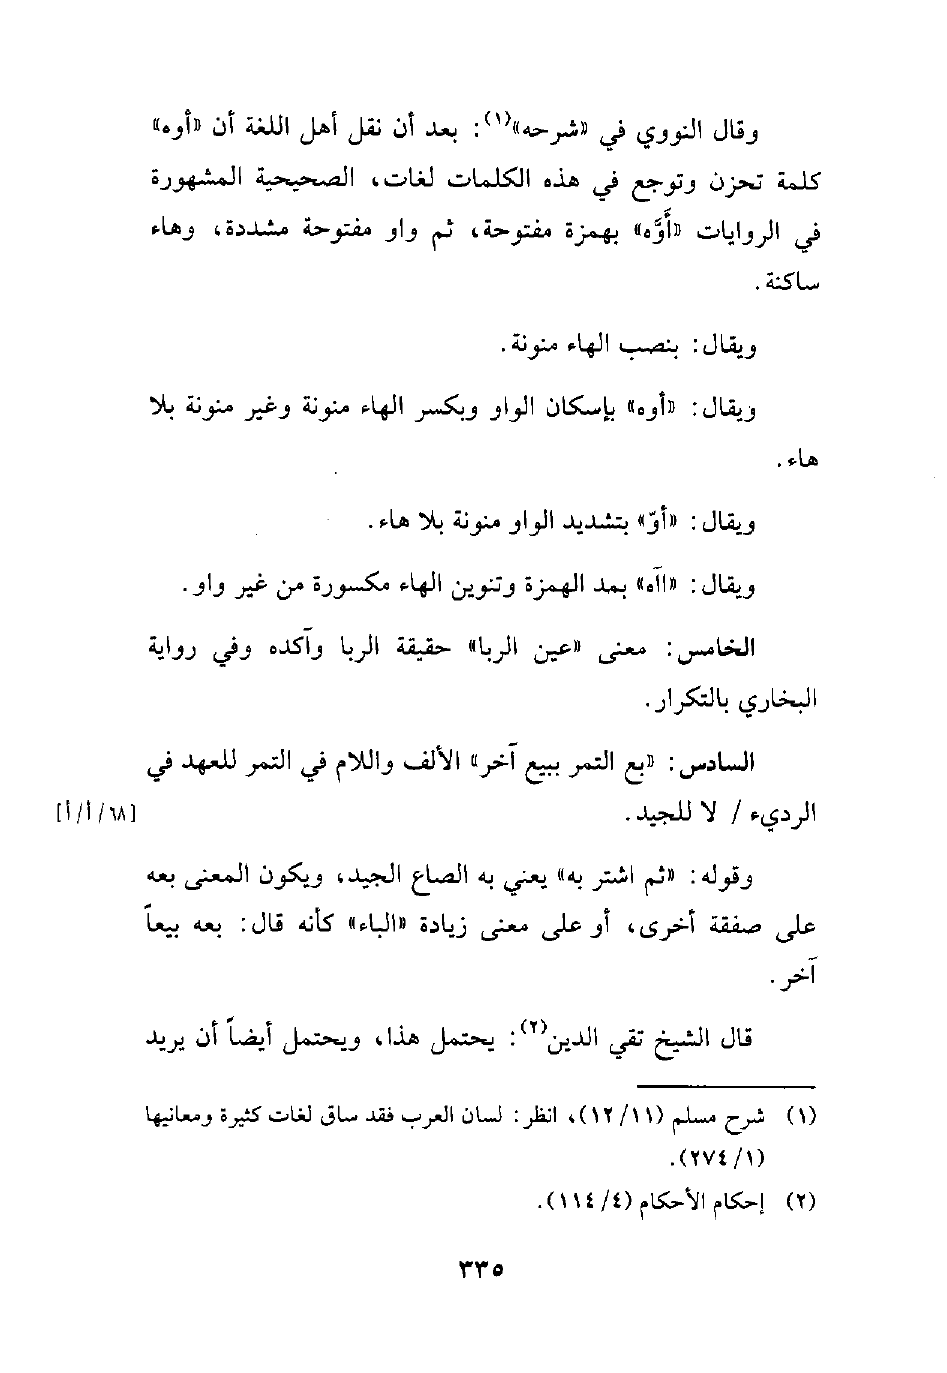 وقال النووي في «شرحه»(١): بعد أن نقل أهل اللغة أن «أوه»
كلمة تحزن وتوجع في هذه الكلمات لغات، الصحيحية المشهورة
في الروايات «أَوَّه» بهمزة مفتوحة، ثم واو مفتوحة مشددة، وهاء
ساكنة.
ويقال: بنصب الهاء منونة.
ويقال: «أوه» بإسكان الواو وبكسر الهاء منونة وغير منونة بلا
هاء.
ويقال: «أوّ» بتشديد الواو منونة بلا هاء.
ويقال: «اآه» بمد الهمزة وتنوين الهاء مكسورة من غير واو.
الخامس: معنى «عين الربا» حقيقة الربا وآكده وفي رواية
البخاري بالتكرار.
السادس: «بع التمر ببيع آخر» الألف واللام في التمر للعهد في
الرديء / لا للجيد. [٦٨/أ/أ]
وقوله: «ثم اشتر به» يعني به الصاع الجيد، ويكون المعنى بعه
على صفقة أخرى، أو على معنى زيادة «الباء» كأنه قال: بعه بيعاً
آخر.
قال الشيخ تقي الدين(٢): يحتمل هذا، ويحتمل أيضاً أن يريد
(١) شرح مسلم (١٢/١١)، انظر: لسان العرب فقد ساق لغات كثيرة ومعانيها
(٢٧٤/١).
(٢) إحكام الأحكام (١١٤/٤).
٣٣٥